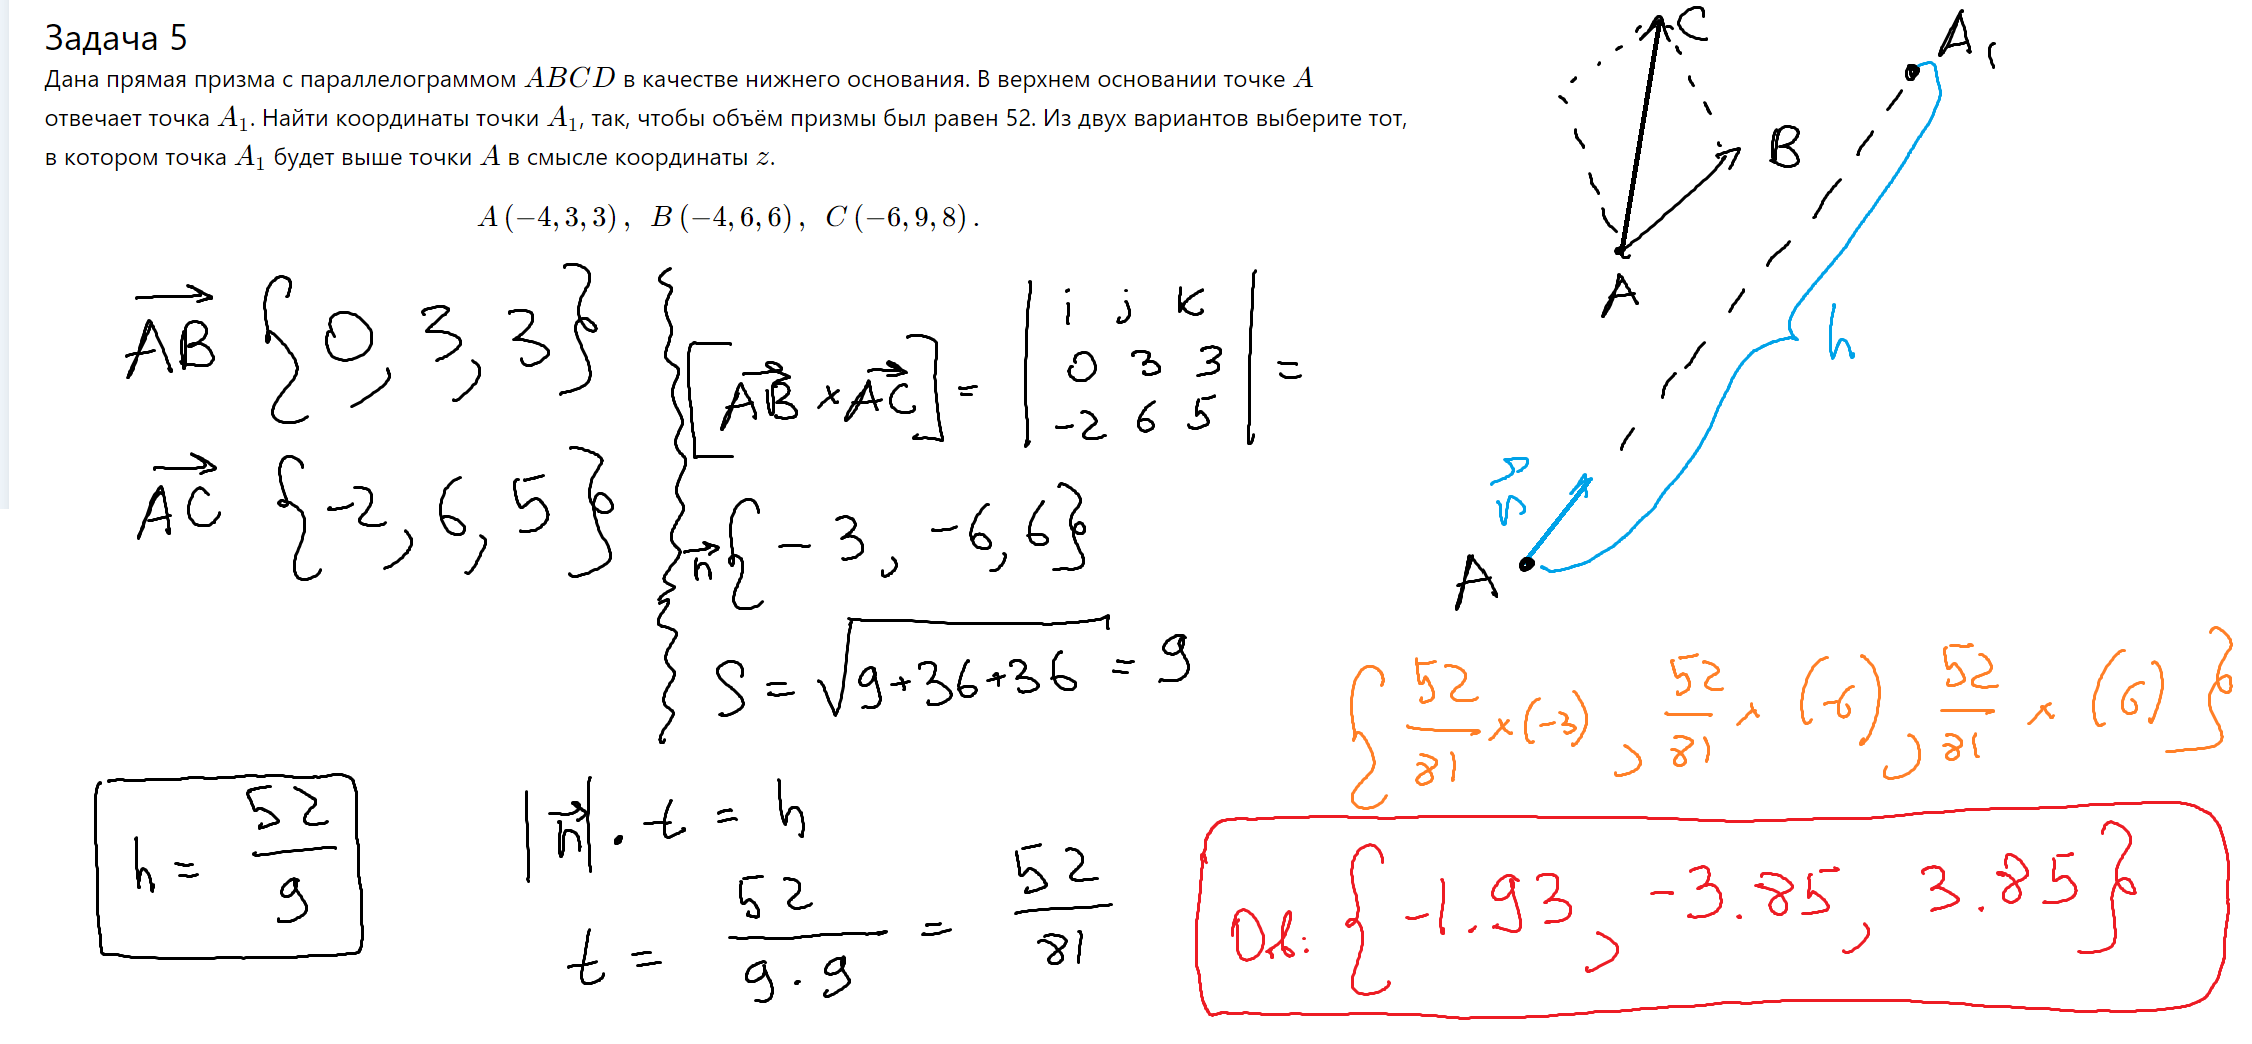 Задача 5
Дана прямая призма с параллелограммом ABCD в качестве нижнего основания. В верхнем основании точке A
отвечает точка A₁. Найти координаты точки A₁, так, чтобы объём призмы был равен 52. Из двух вариантов выберите тот,
в котором точка A₁ будет выше точки A в смысле координаты z.
A (−4, 3, 3) , B (−4, 6, 6) , C (−6, 9, 8) .
AB {0, 3, 3}
AC {-2, 6, 5}
[AB × AC] = | i j k
0 3 3
-2 6 5 | =
n {-3, -6, 6}
S = √9+36+36 = 9
h = 52/9
|n| · t = h
t = 52/9·9 = 52/81
C
B
A
A₁
h
n
A
{52/81 × (-3), 52/81 × (-6), 52/81 × (6)}
Отв: {-1.93, -3.85, 3.85}